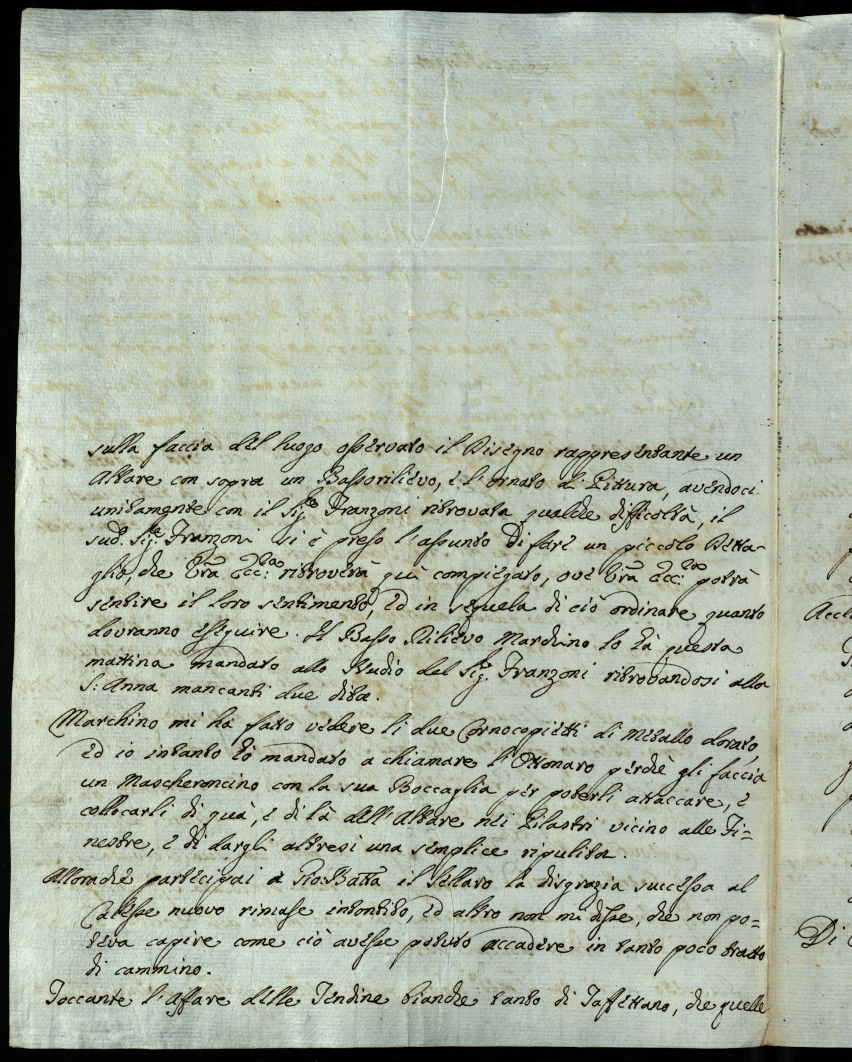 sulla faccia del luogo osservato il Disegno rappresentante un
Altare con sopra un Bassorilievo, e l'ornato di Pittura, avendoci
unitamente con il Sig.re Franzoni ritrovata qualche difficoltà, il
sud.o Sig.re Franzoni si è preso l'assunto di fare un piccolo Detta-
glio, che Vra Ecc:za ritroverà quì compiegato, ove Vra Ecc:za potrà
sentire il loro sentimento, ed in sequela di ciò ordinare quanto
dovranno eseguire. Il Basso Rilievo Marchino lo hà questa
mattina mandato allo Studio del Sig.r Franzoni ritrovandosi alla
S: Anna mancanti due dita.
Marchino mi ha fatto vedere li due Cornocopietti di Metallo dorato,
ed io intanto hò mandato a chiamare l'Ottonaro perchè gli faccia
un Mascheroncino con la sua Boccaglia per poterli attaccare, e
collocarli di quà, e di là dell'Altare nei Pilastri vicino alle Fi=
nestre, e di dargli altresì una semplice ripulita.
Allorachè partecipai a Gio: Batta il Sellaro la disgrazia successa al
Calesse nuovo rimase intontito, ed altro non mi disse, che non po=
teva capire come ciò avesse potuto accadere in tanto poco tratto
di cammino.
Toccante l'Affare delle Tendine bianche tanto di Taffettano, che quelle
Di